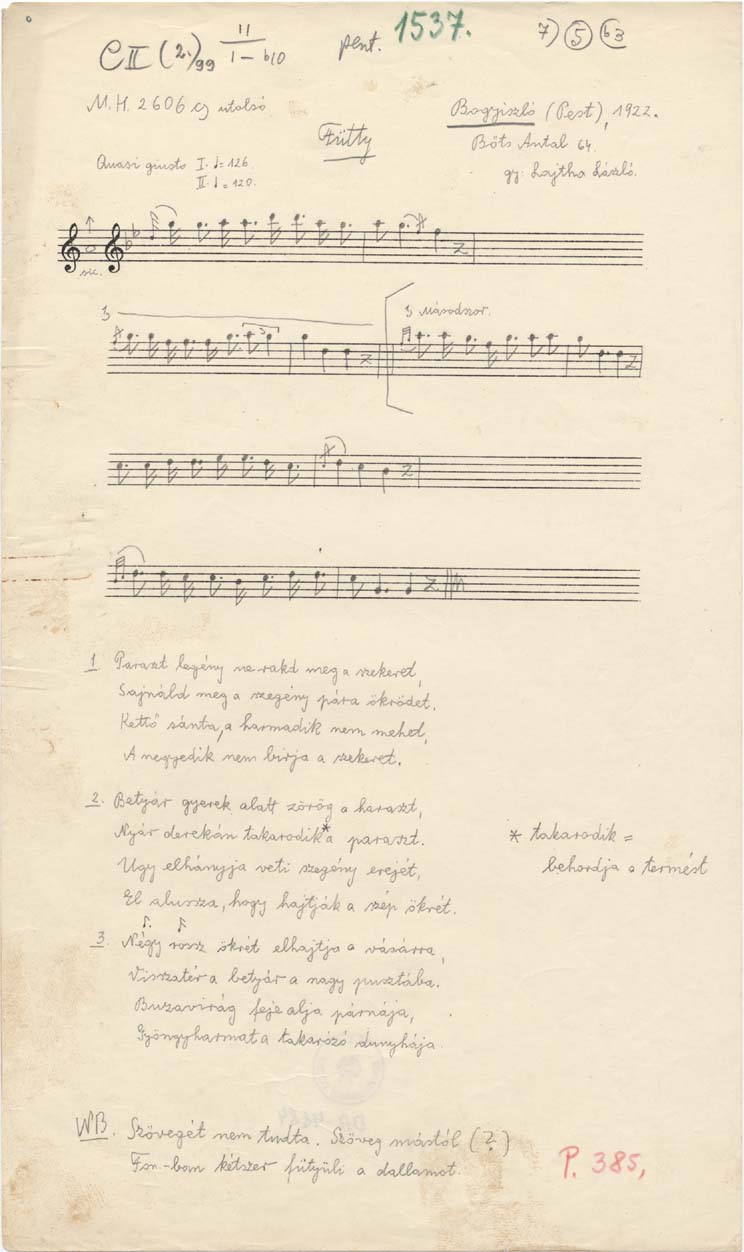 C II (2.) 99 11 / 1 – b10
pent.
1537.
7) 5 b3
M. H. 2606 c) utolsó
Bogyiszló (Pest), 1922.
Fütty
Bőts Antal 64.
Quasi giusto I. ♩= 126.
gy: Lajtha László.
II. ♩= 120.
sic.
3
3 Másodszor.
1. Paraszt legény ne rakd meg a szekeret,
Sajnáld meg a szegény pára ökrödet.
Kettő sánta, a harmadik nem mehet,
A negyedik nem birja a szekeret.
2. Betyár gyerek alatt zörög a haraszt,
Nyár derekán takarodik* a paraszt.
* takarodik =
behordja a termést
Ugy elhányja veti szegény erejét,
El alussza, hogy hajtják a szép ökrét.
3. Négy rossz ökrét elhajtja a vásárra,
Visszatér a betyár a nagy pusztába.
Buzavirág feje alja párnája,
Gyöngyharmat a takarózó dunyhája.
NB. Szövegét nem tudta. Szöveg mástól (?)
Fon.-ban kétszer fütyüli a dallamot.
P. 385,